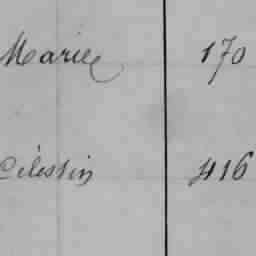 Marie 170
Célestin 416